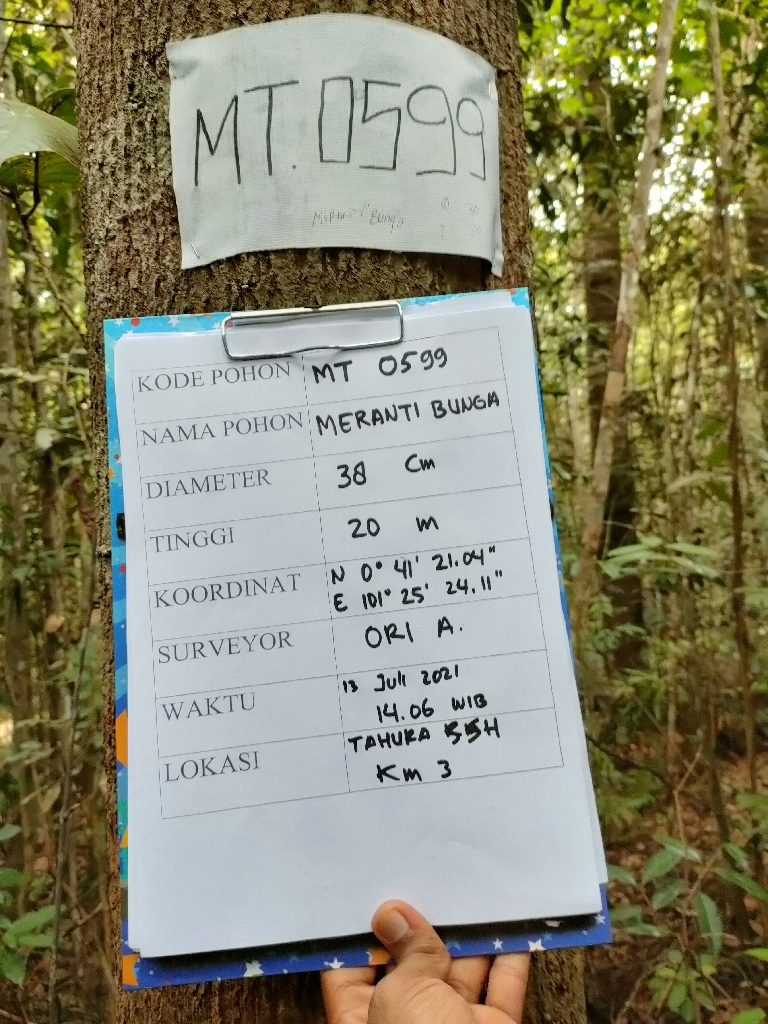 MT.0599
MERANTI BUNGA
KODE POHON MT 0599
NAMA POHON MERANTI BUNGA
DIAMETER 38 Cm
TINGGI 20 m
KOORDINAT N 0° 41' 21.04"
E 101° 25' 24.11"
SURVEYOR ORI A.
WAKTU 13 Juli 2021
14.06 WIB
LOKASI TAHURA SSH
Km 3